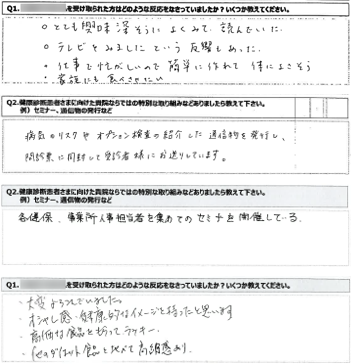 Q1. を受け取られた方はどのような反応をなさっていましたか？いくつか教えてください。
○ とても興味深そうに よくみて、読んでいた。
○ テレビでみました という反響もあった。
○ 仕事で忙しいので 簡単に作れて 体によさそう
○ 家族にも 食べさせたい
Q2.健康診断患者さまに向けた貴院ならではの特別な取り組みなどありましたら教えて下さい。
例）セミナー、通信物の発行など
病気のリスクや オプション検査の紹介した 通信物を発行し、
問診票に同封して受診者様にお送りしています。
Q2.健康診断患者さまに向けた貴院ならではの特別な取り組みなどありましたら教えて下さい。
例）セミナー、通信物の発行など
各健保、事業所人事担当者を集めてのセミナーを開催している。
Q1. を受け取られた方はどのような反応をなさっていましたか？いくつか教えてください。
・大変よろこんでいました。
・オシャレ感・健康的なイメージを持ったと思います
・高価な食品をもらってラッキー。
・他のダイエット食品と比べて高級感あり。